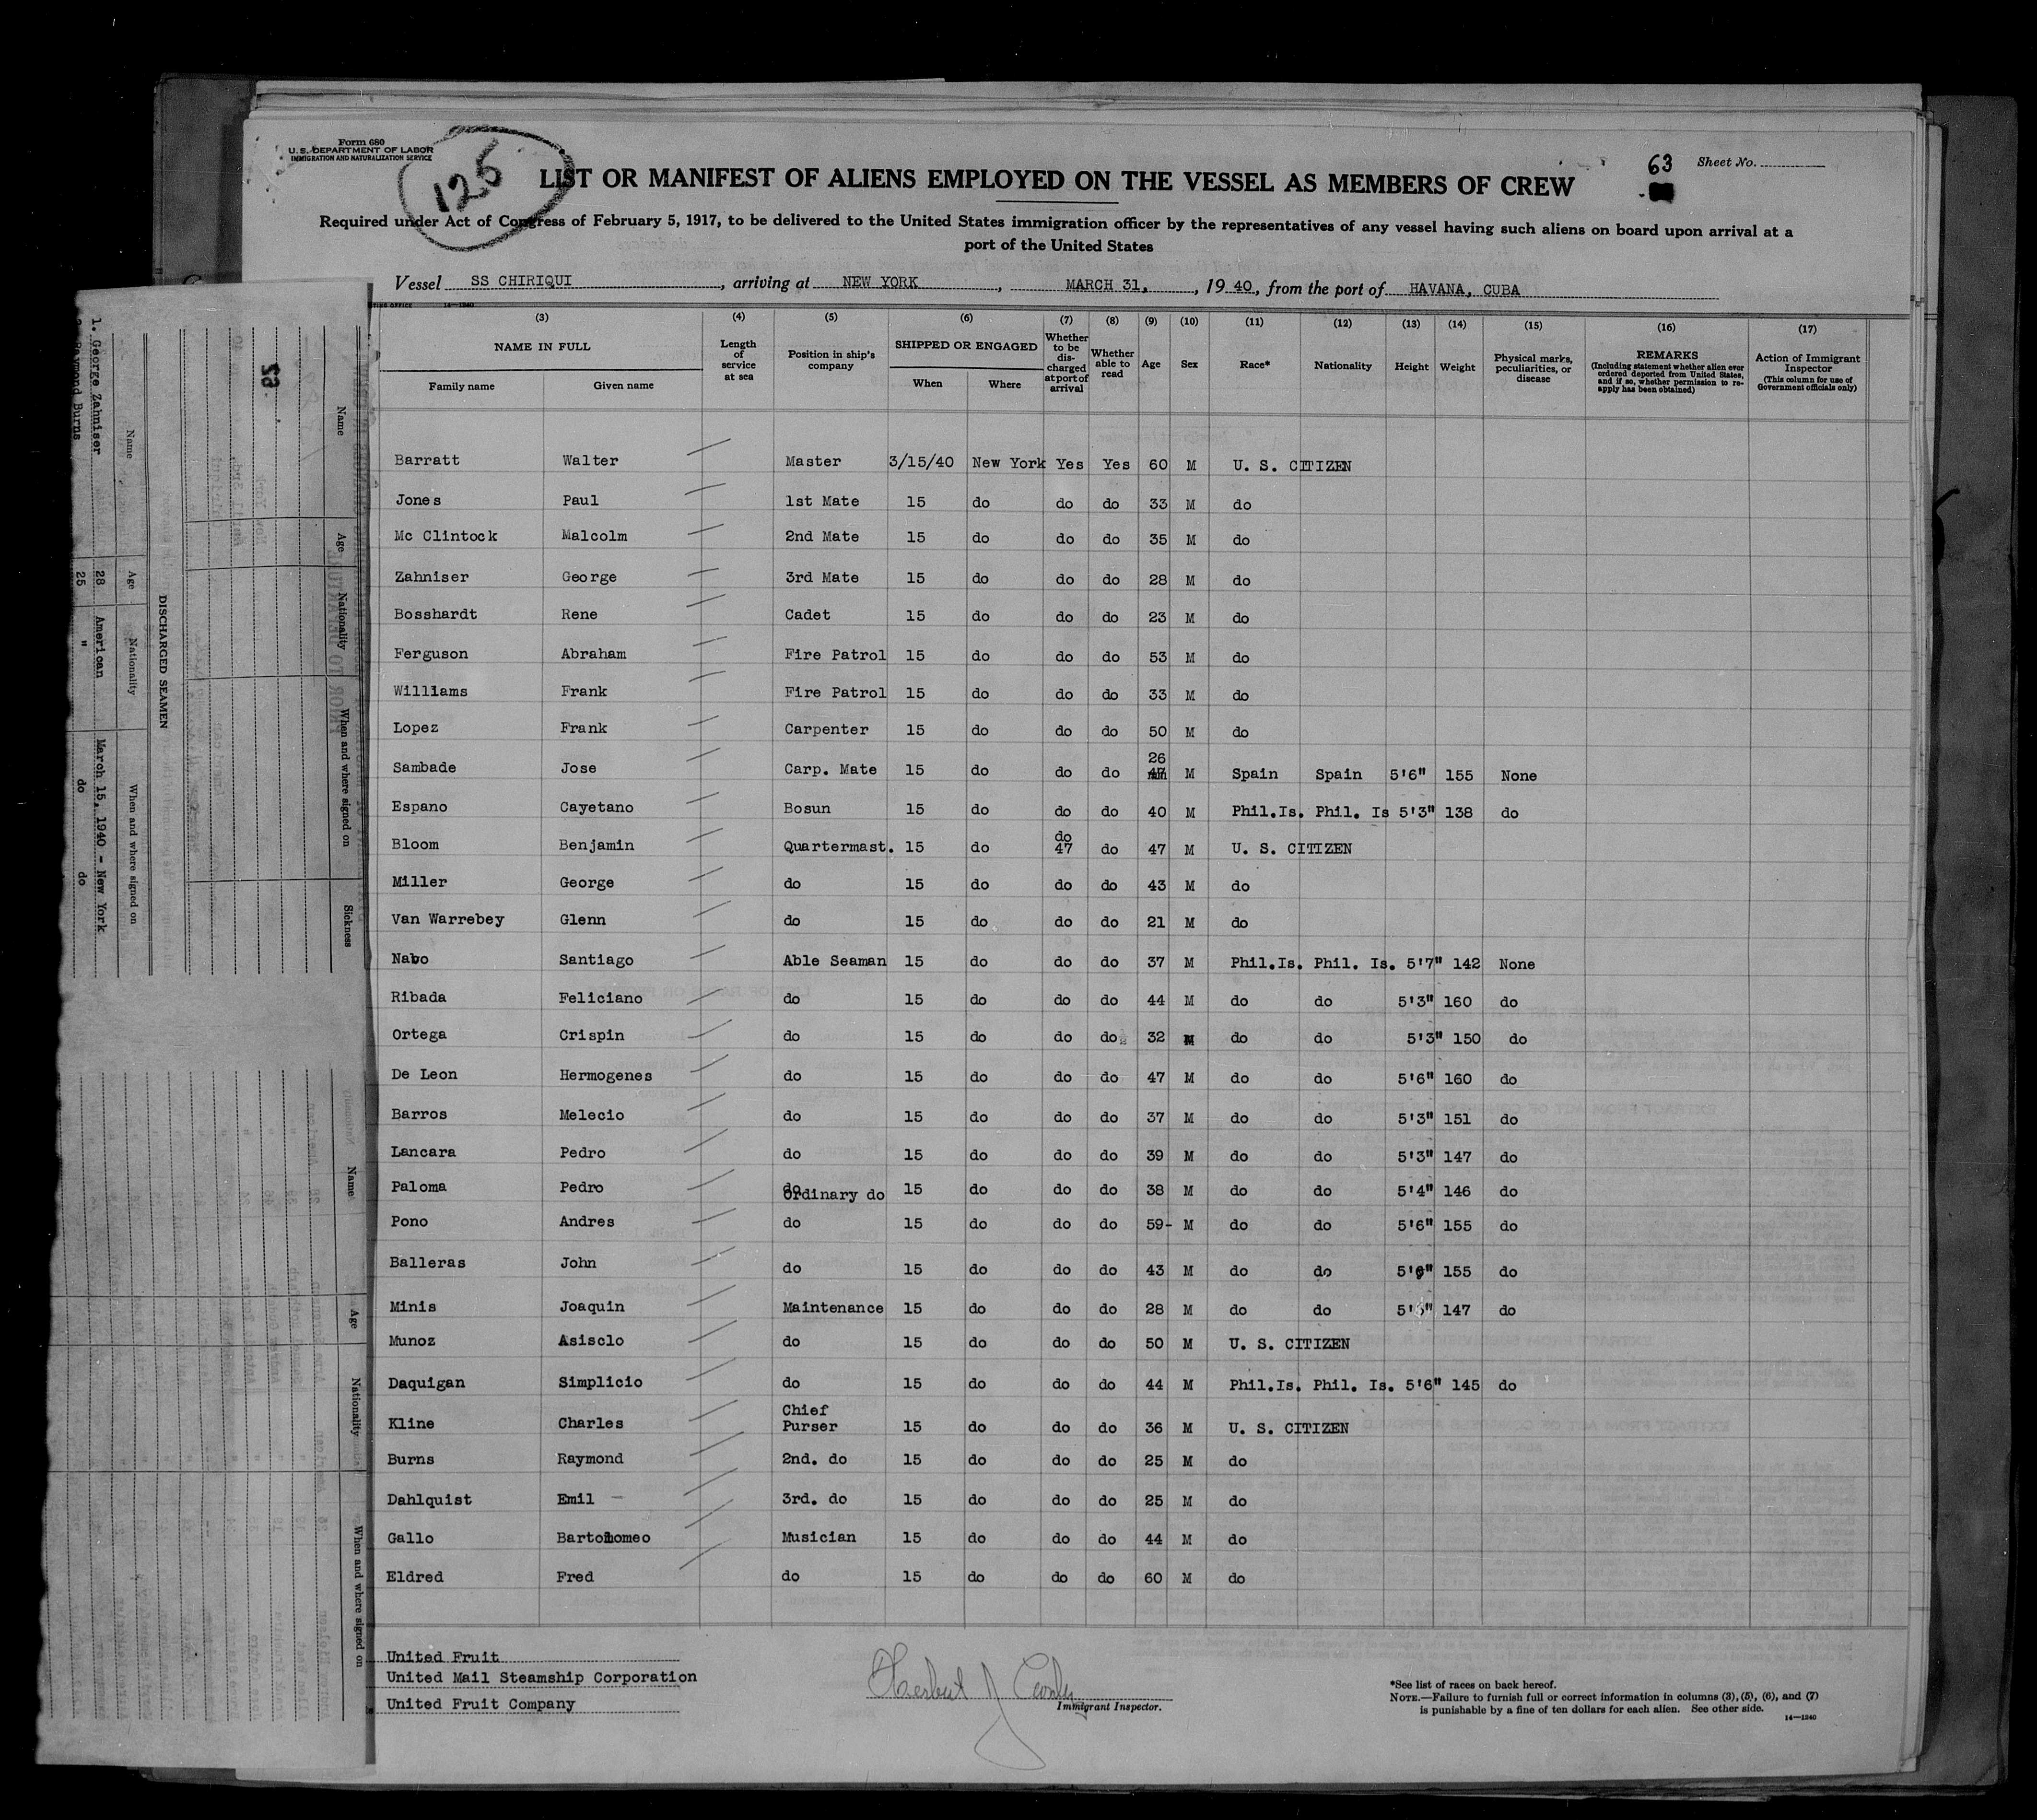 Form 680
U. S. DEPARTMENT OF LABOR
IMMIGRATION AND NATURALIZATION SERVICE
125
LIST OR MANIFEST OF ALIENS EMPLOYED ON THE VESSEL AS MEMBERS OF CREW
63 Sheet No.
Required under Act of Congress of February 5, 1917, to be delivered to the United States immigration officer by the representatives of any vessel having such aliens on board upon arrival at a
port of the United States
Vessel SS CHIRIQUI, arriving at NEW YORK, MARCH 31, 1940, from the port of HAVANA, CUBA
(3) (4) (5) (6) (7) (8) (9) (10) (11) (12) (13) (14) (15) (16) (17)
NAME IN FULL
Family name Given name
Length of service at sea
Position in ship's company
SHIPPED OR ENGAGED
When Where
Whether to be discharged at port of arrival
Whether able to read
Age Sex Race* Nationality Height Weight
Physical marks, peculiarities, or disease
REMARKS
(Including statement whether alien ever ordered deported from United States, and if so, whether permission to re-apply has been obtained)
Action of Immigrant Inspector
(This column for use of Government officials only)
Barratt Walter Master 3/15/40 New York Yes Yes 60 M U. S. CITIZEN
Jones Paul 1st Mate 15 do do do 33 M do
Mc Clintock Malcolm 2nd Mate 15 do do do 35 M do
Zahniser George 3rd Mate 15 do do do 28 M do
Bosshardt Rene Cadet 15 do do do 23 M do
Ferguson Abraham Fire Patrol 15 do do do 53 M do
Williams Frank Fire Patrol 15 do do do 33 M do
Lopez Frank Carpenter 15 do do do 50 M do
Sambade Jose Carp. Mate 15 do do do 26 M Spain Spain 5'6" 155 None
Espano Cayetano Bosun 15 do do do 40 M Phil.Is. Phil. Is 5'3" 138 do
Bloom Benjamin Quartermast. 15 do do 47 do 47 M U. S. CITIZEN
Miller George do 15 do do do 43 M do
Van Warrebey Glenn do 15 do do do 21 M do
Nabo Santiago Able Seaman 15 do do do 37 M Phil.Is. Phil. Is. 5'7" 142 None
Ribada Feliciano do 15 do do do 44 M do do 5'3" 160 do
Ortega Crispin do 15 do do do 32 M do do 5'3" 150 do
De Leon Hermogenes do 15 do do do 47 M do do 5'6" 160 do
Barros Melecio do 15 do do do 37 M do do 5'3" 151 do
Lancara Pedro do 15 do do do 39 M do do 5'3" 147 do
Paloma Pedro do Ordinary do 15 do do do 38 M do do 5'4" 146 do
Pono Andres do 15 do do do 59- M do do 5'6" 155 do
Balleras John do 15 do do do 43 M do do 155 do
Minis Joaquin Maintenance 15 do do do 28 M do do 147 do
Munoz Asisclo do 15 do do do 50 M U. S. CITIZEN
Daquigan Simplicio do 15 do do do 44 M Phil.Is. Phil. Is. 5'6" 145 do
Kline Charles Chief Purser 15 do do do 36 M U. S. CITIZEN
Burns Raymond 2nd. do 15 do do do 25 M do
Dahlquist Emil 3rd. do 15 do do do 25 M do
Gallo Bartolomeo Musician 15 do do do 44 M do
Eldred Fred do 15 do do do 60 M do
United Fruit
United Mail Steamship Corporation
United Fruit Company
Herbert J
Immigrant Inspector.
*See list of races on back hereof.
NOTE.—Failure to furnish full or correct information in columns (3), (5), (6), and (7)
is punishable by a fine of ten dollars for each alien. See other side.
14—1240
62
Name Age Nationality When and where signed on Sickness
DISCHARGED SEAMEN
Name Age Nationality When and where signed on
1. George Zahniser 28 American March 15, 1940 - New York
Raymond Burns 25 " do do
Name Age Nationality When and where signed on